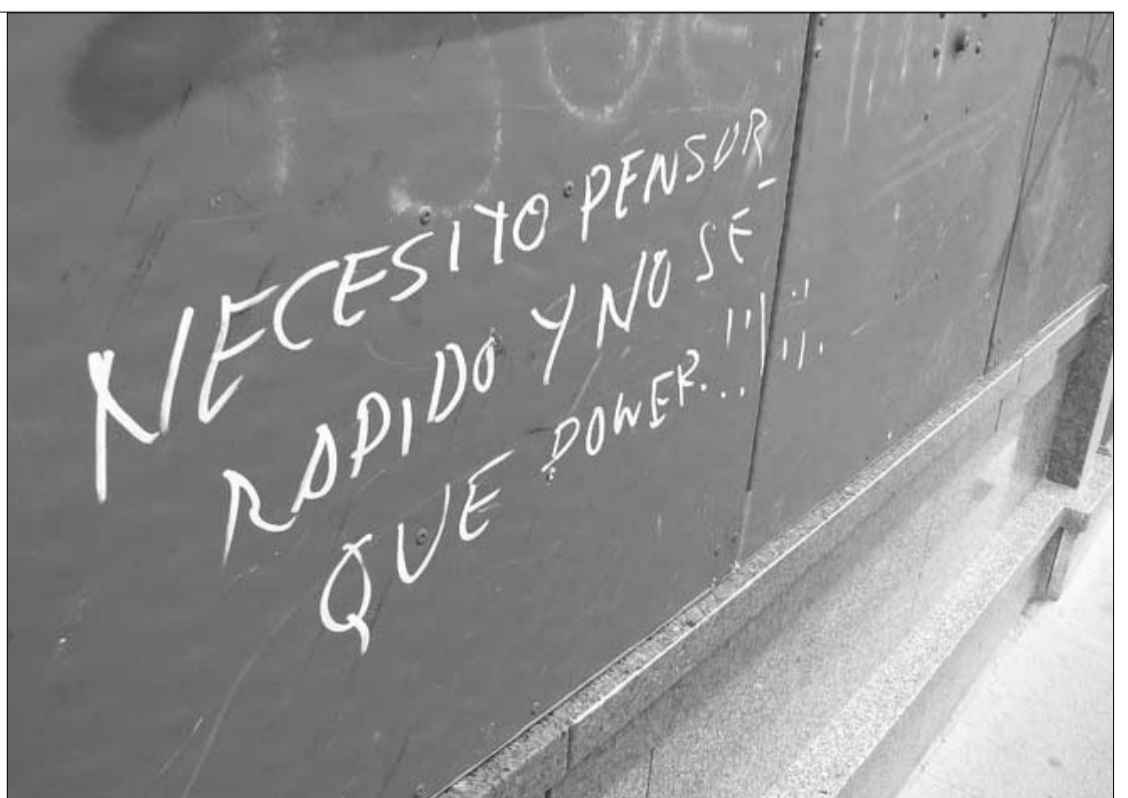 NECESITO PENSAR
RAPIDO Y NO SE
QUE POWER...!!!¡¡¡